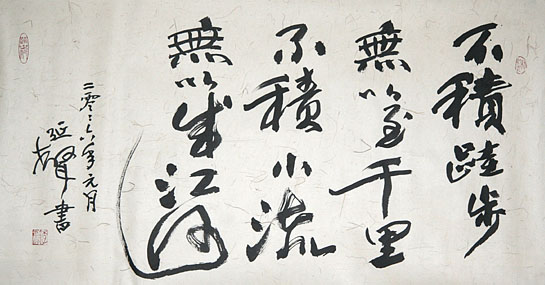 不積跬步
無以至千里
不積小流
無以成江河
二零〻六年元月
延 書